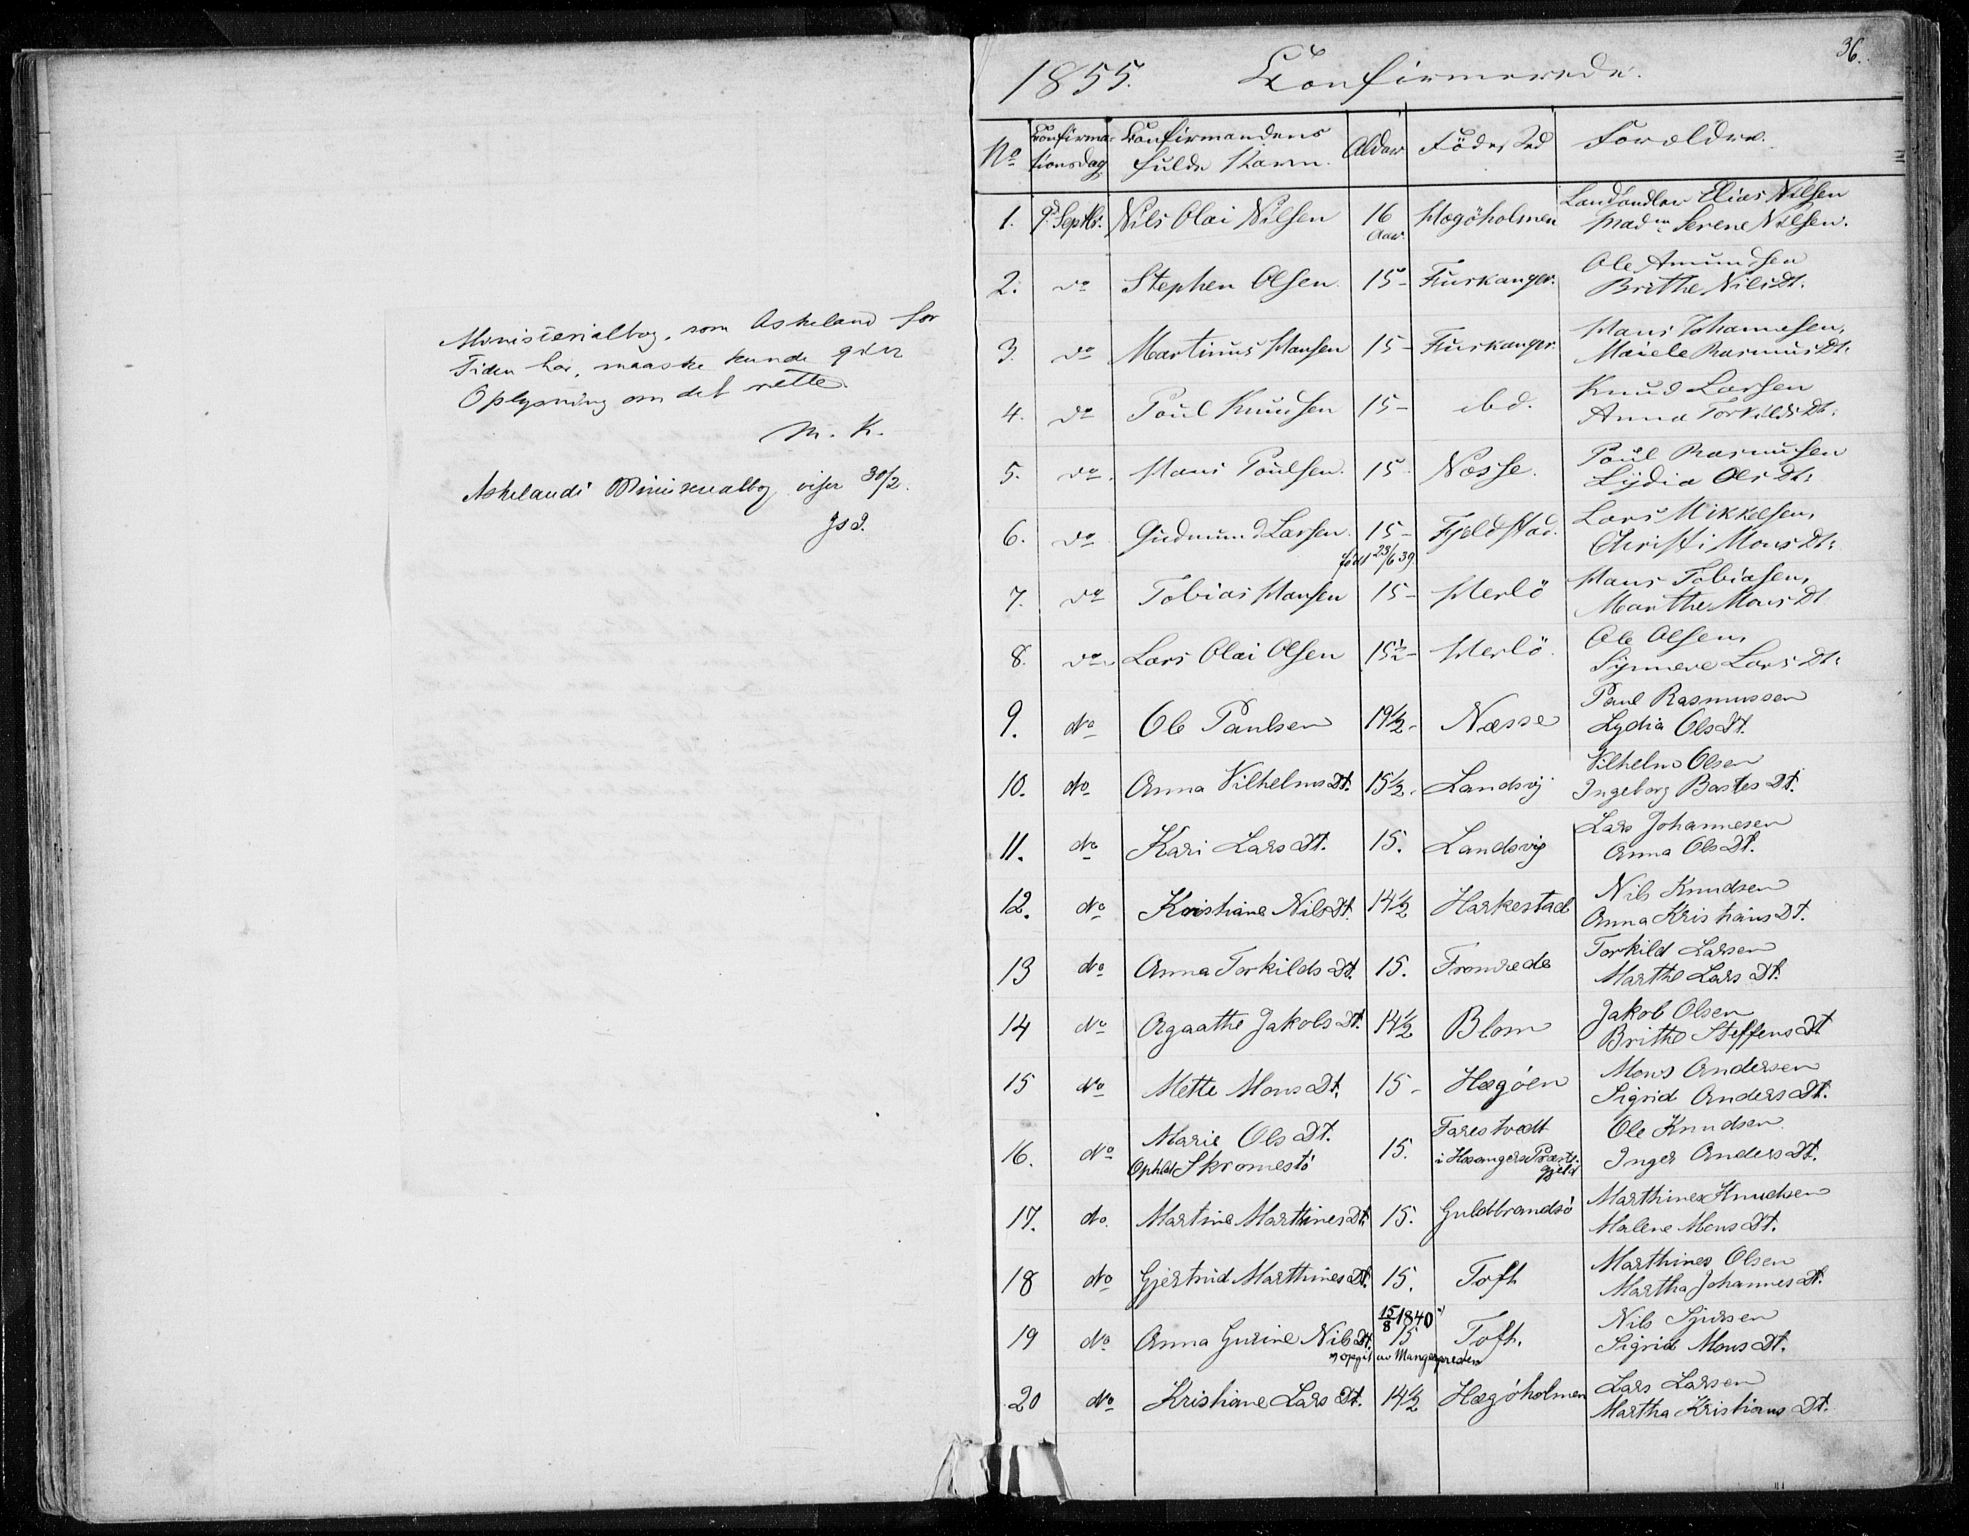 Ministerialbog, som Askeland for
Tiden har, maaske kunde give
Oplysning om det rette.
M. K.
Askelands Ministerialbog viser 30/2.
36.
1855. Confirmerede.
No Confirma- Confirmandens Alder Födested Forældre.
tionsdag fulde Navn.
1. 9d Septbr. Nils Olai Nilsen 16 Hægöholmen Landhandler Elias Nilsen
Aar. Madm Serene Nilsen.
2. do Stephen Olsen 15- Turkanger. Ole Amundsen
Brithe Nilsdt.
3. do Martinus Hansen 15- Turkanger. Hans Johannesen,
Rasmusdt:
4. do Poul Knudsen 15- ibd. Knud Larsen
Anna Torkildsdt:
5. do. Hans Poulsen. 15. Næsse. Poul Rasmussen
Lydia Olsdt:
6. do Gudmund Larsen. 15- Fjeldstad. Lars Mikkelsen,
Christi Monsdt:
født 23/6 39.
7. do Tobias Hansen 15- Herlö Hans Tobiasen,
Marthe Monsdt
8. do Lars Olai Olsen 15½- Herlö. Ole Olsen,
Synneve Larsdt:
9. do Ole Paulsen 19½- Næsse Paul Rasmussen
Lydia Olsdt.
10. do Anna Vilhelmsdt. 15½. Landsvig Vilhelm Olsen
Ingeborg Bastesdt.
11. do Kari Larsdt. 15. Landsvig Lars Johannesen
Anna Olsdt.
12. do Kristiane Nilsdt. 14½ Harkestad Nils Knudsen
Anna Kristiansdt.
13 do Anna Torkildsdt. 15. Fromrede Torkild Larsen
Marthe Larsdt.
14 do Agaathe Jakobsdt. 14½ Blom Jakob Olsen
Brithe Steffensdt
15 do Mette Monsdt. 15- Hægöen Mons Andersen
Sigrid Andersdt.
16. do Marie Olsdt. 15. Farestvedt Ole Knudsen.
Ophold Skromestö i Hosangers Præste- Inger Andersdt.
gjeld
17. do. Martine Marthinesdt. 15. Guldbrandsö Marthines Knudsen
Malene Monsdt.
18 do Gjertrud Marthinesdt. 15. Toft Marthines Olsen
Martha Johannesdt.
15/8 1840 x)
19 do Anna Gurine Nilsdt. 15 Toft. Nils Sjursen
Sigrid Monsdt.
x) opgit av Mangerpresten
20 do Kristiane Larsdt. 14½ Hægöholmen Lars Larsen
Martha Kristiansdt.